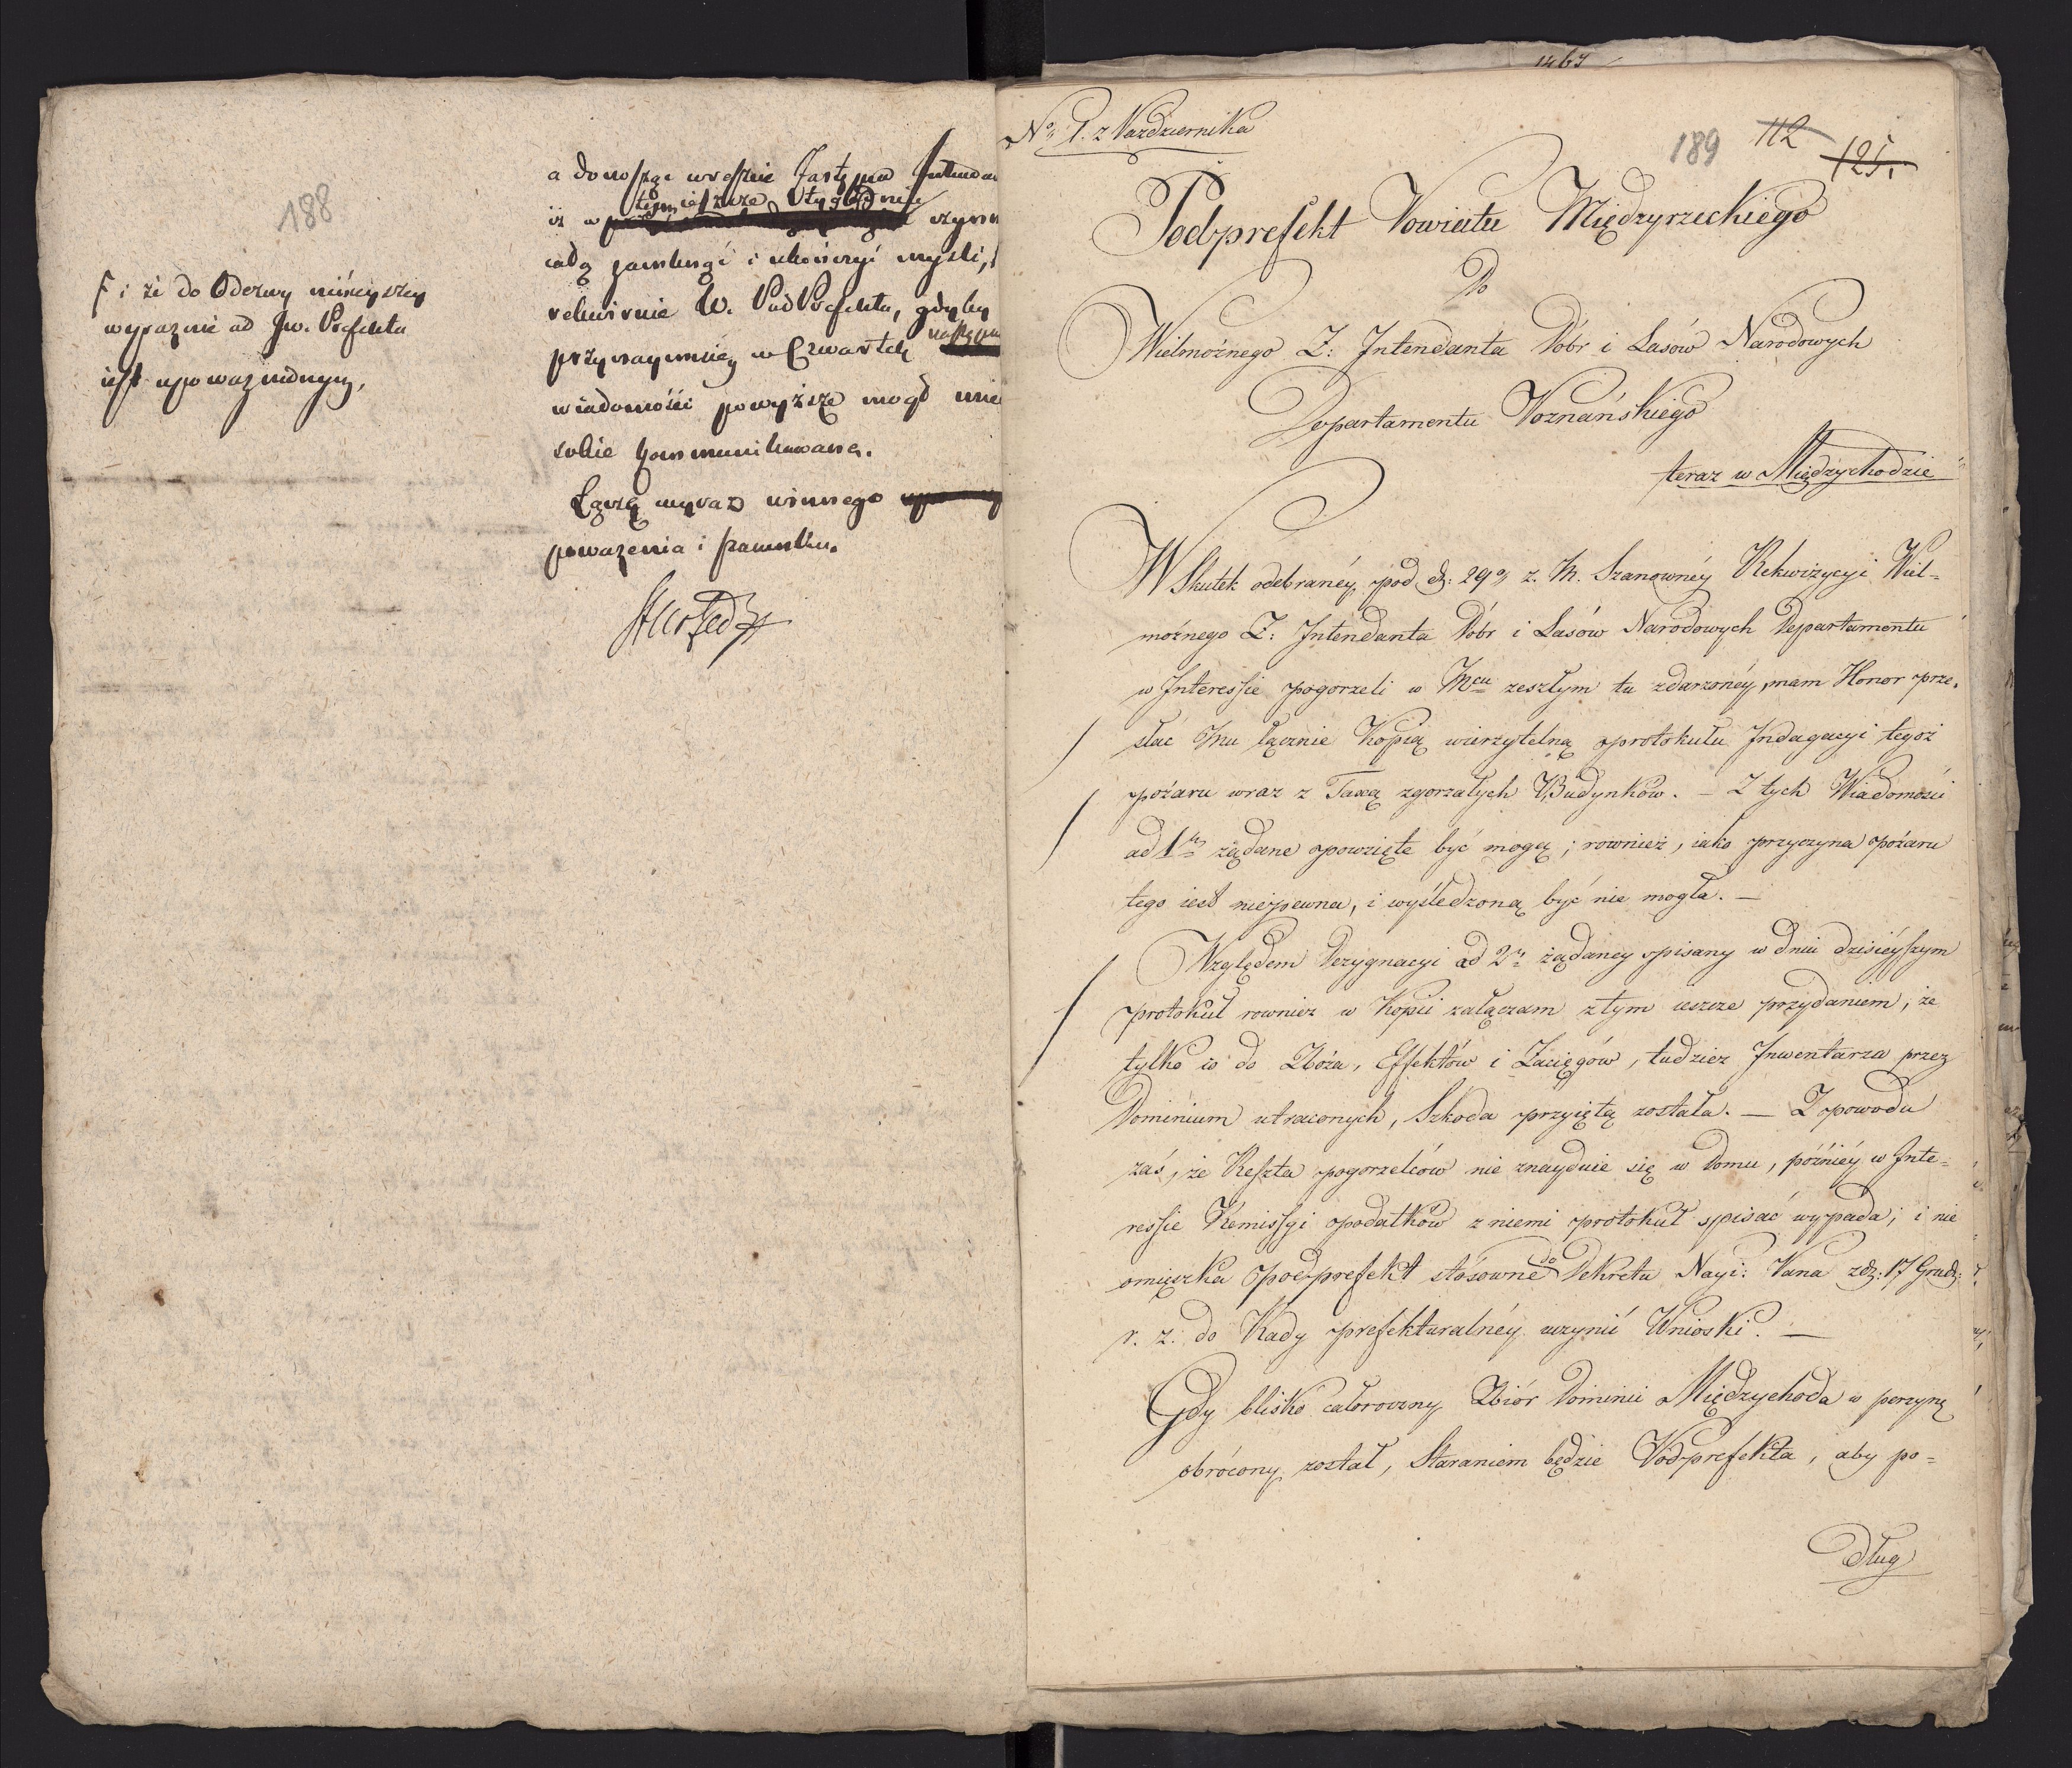 188
F i że do Odezwy ninieyszey
wyraznie od Jw. Prefekta
iest upoważnionym,
a donosząc wreszcie Zastępca Intenda
iż w tym ieszcze Tygodniu czynn
całą zamknąć i ukończyć myśli,
rekwiruie W. PodPrefekta, gdyby
przynaymniey w Czwartek następu
wiadomości powyższe mogł mie
sobie kommunikowane.
Łączę wyraz winnego
poważenia i szacunku.
1467
No 1. z Pazdziernika
189 112 125.
Podprefekt Powiatu Międzyrzeckiego
Do
Wielmożnego Z: Intendanta Dóbr i Lasów Narodowych
Departamentu Poznańskiego
teraz w Międzychodzie
W Skutek odebranéy pod d: 29o z. M. Szanownéy Rekwizycyi Wiel=
możnego Z: Intendanta Dóbr i Lasów Narodowych Departamentu
w Interessie pogorzeli w Mcu zeszłym tu zdarzonéy, mam Honor prze=
słać Mu łącznie Kopią wierzytelną protokułu Indagacyi tegoż
pożaru wraz z Taxą zgorzałych Budynków. – Z tych Wiadomości
ad 1m żądane powzięte być mogą; rownież, iako przyczyna pożaru
tego iest niepewna, i wyśledzoną być nie mogła. —
Względem Dezygnacyi ad 2m żądaney spisany w dniu dzisieyszym
protokuł rownież w Kopii załączam z tym ieszcze przydaniem, że
tylko co do Zboża, Effektów i Zacięgów, tudzież Inwentarza przez
Dominium utraconych, Szkoda przyiętą została. — Z powodu
zaś, że Reszta pogorzelców nie znayduie się w Domu, późniéy w Inte=
ressie Remissyi podatków z niemi protokuł spisać wypada; i nie
omieszka podprefekt stósownie do Dekretu Nayi: Pana z d: 17 Grud:
r. z. do Rady prefekturalnéy uczynić Wnioski. —
Gdy blisko całoroczny Zbiór Dominii Międzychoda w perzynę
obrócony został, Staraniem będzie Podprefekta, aby po=
dług